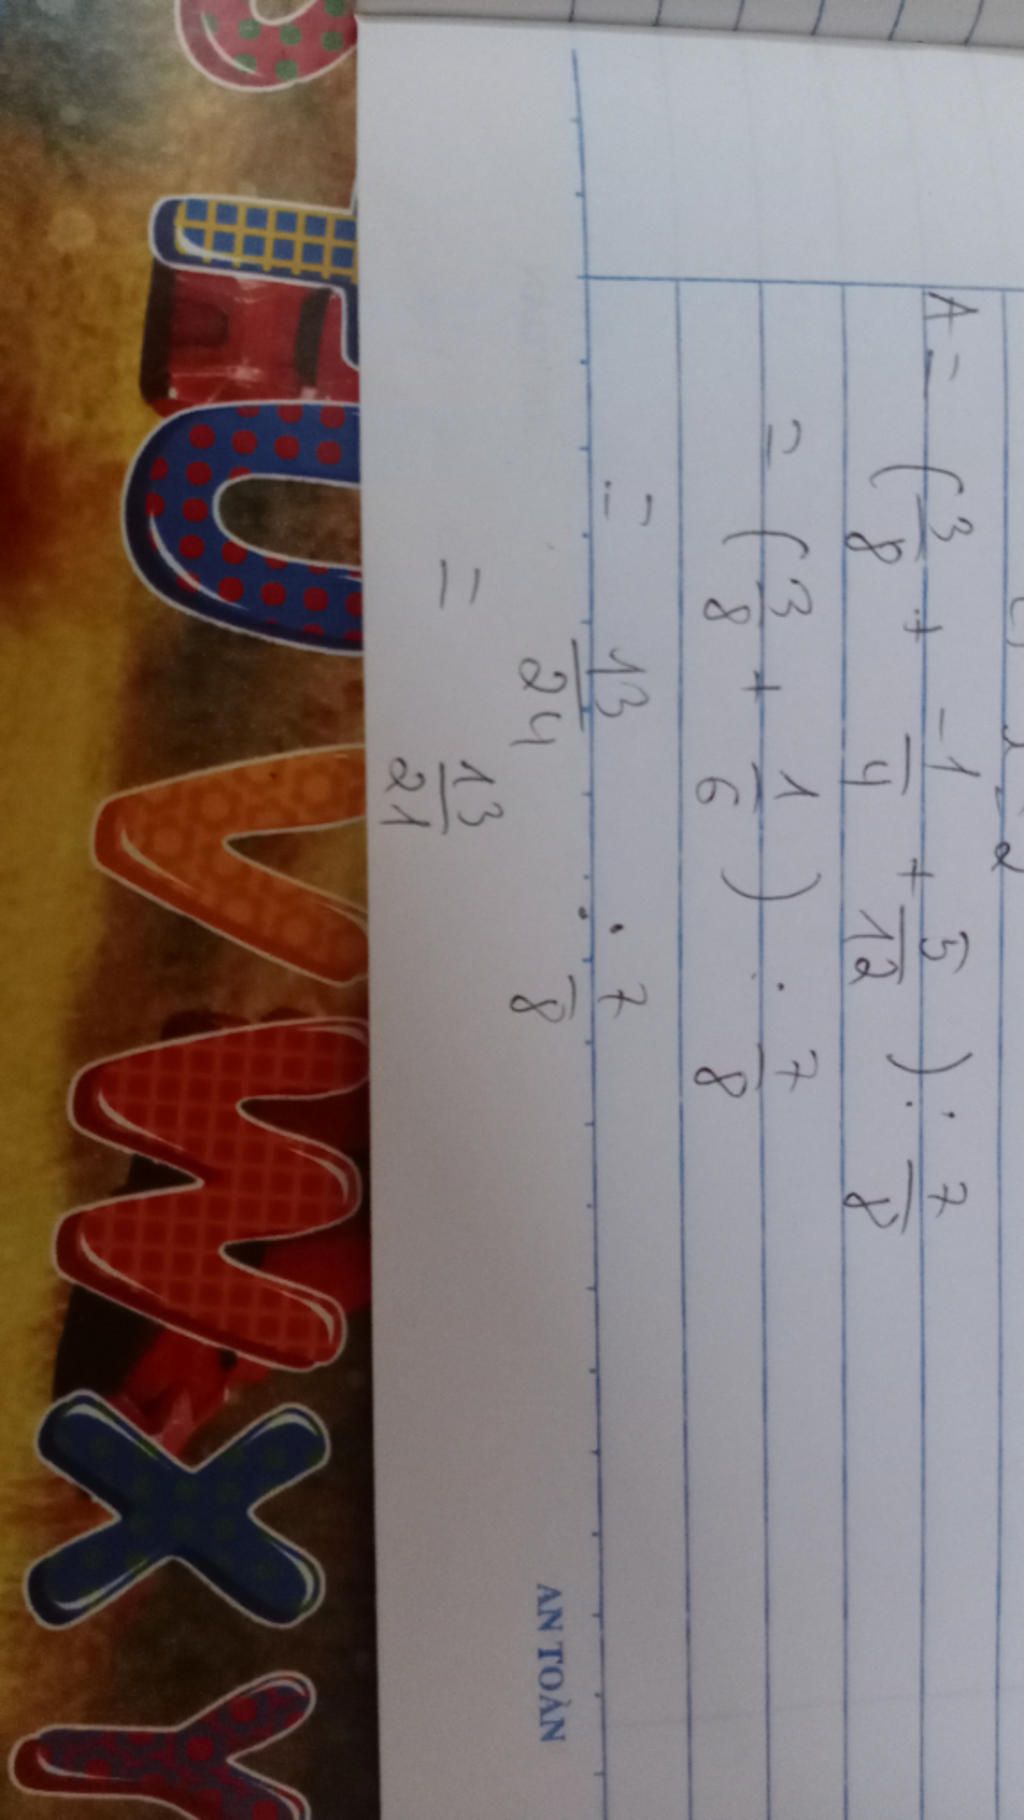 A = (3/8 + -1/4 + 5/12) : 7/8
= (3/8 + 1/6) : 7/8
= 13/24 : 7/8
= 13/21
AN TOÀN